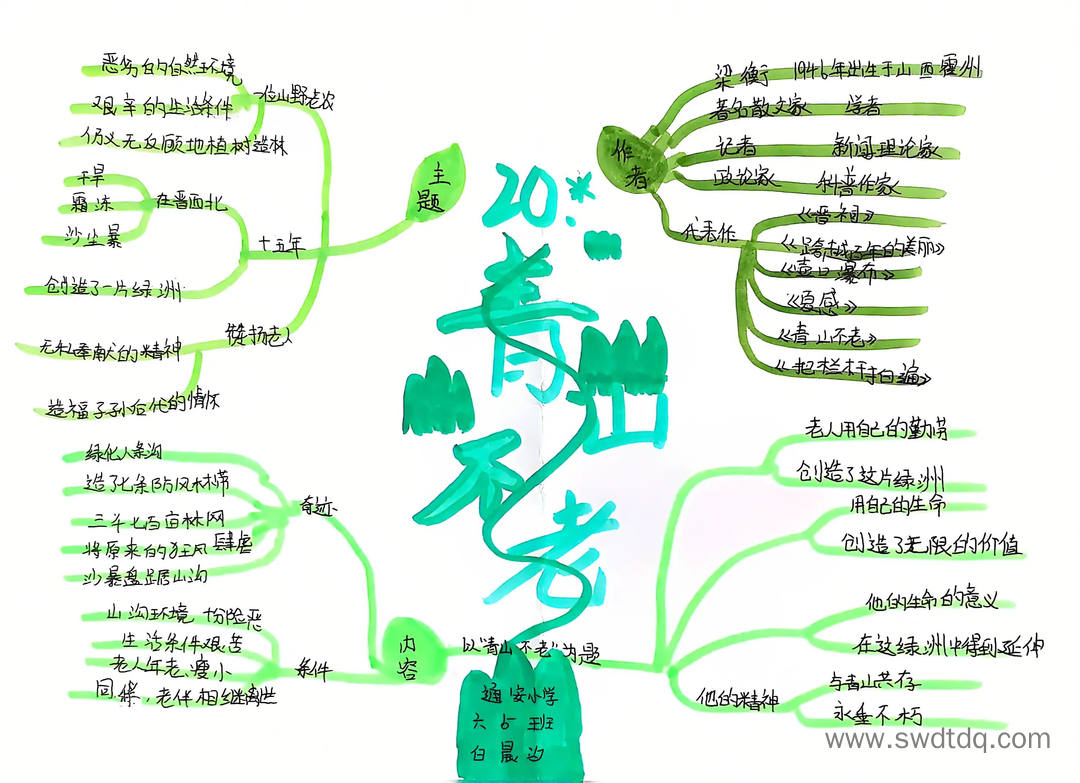 20.*
青
山
不
老
主
题
一位山野老农
恶劣的自然环境
艰辛的生活条件
仍义无反顾地植树造林
十五年
在晋西北
干旱
霜冻
沙尘暴
创造了一片绿洲
赞扬老人
无私奉献的精神
造福子孙后代的情怀
作
者
梁衡 1946年出生于山西霍州
著名散文家 学者
记者 新闻理论家
政论家 科普作家
代表作
《晋祠》
《跨越百年的美丽》
《壶口瀑布》
《夏感》
《青山不老》
《把栏杆拍遍》
内
容
奇迹
绿化八条沟
造了七条防风林带
三千七百亩林网
将原来的狂风肆虐
沙暴盘踞山沟
条件
山沟环境 险恶
生活条件艰苦
老人年老、瘦小
同伴,老伴相继离世
以"青山不老"为题
老人用自己的勤劳
创造了这片绿洲
用自己的生命
创造了无限的价值
他的生命的意义
在这绿洲中得到延伸
他的精神
与青山共存
永垂不朽
通安小学
六5班
白晨汐
www.swdtdq.com